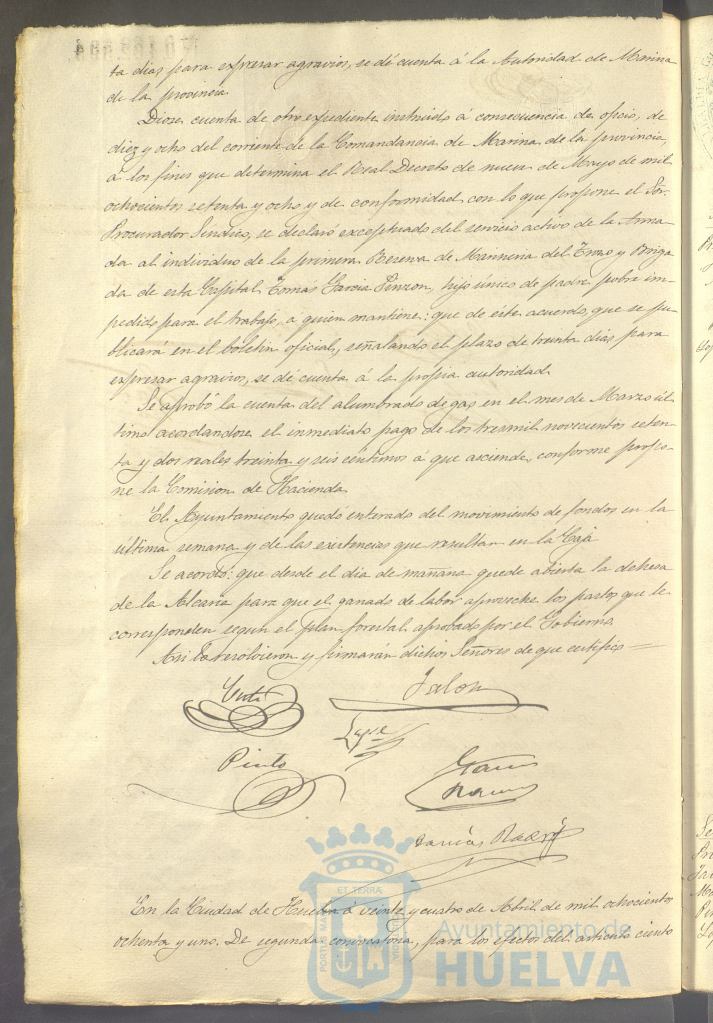 ta dias para expresar agravios, se dé cuenta á la Autoridad de Marina
de la provincia.
Diose cuenta de otro expediente instruido á consecuencia de oficio, de
diez y ocho del corriente de la Comandancia de Marina de la provincia,
á los fines que determina el Real Decreto de nueve de Mayo de mil
ochocientos setenta y ocho y de conformidad con lo que propone el Sor.
Procurador Síndico, se declaró exceptuado del servicio activo de la Arma-
da al individuo de la primera Reserva de Marineria del Trozo y Briga
da de esta Capital Tomas Garcia Pinzon, hijo único de padre pobre im-
pedido para el trabajo, a quien mantiene: que de éste acuerdo, que se pu-
blicará en el boletin oficial, señalando el plazo de treinta dias para
expresar agravios, se dé cuenta á la propia autoridad.
Se aprobó la cuenta del alumbrado de gas en el mes de Marzo úl-
timo acordandose el inmediato pago de los tresmil novecientos seten-
ta y dos reales treinta y seis centimos á que asciende, conforme propo-
ne la Comision de Hacienda.
El Ayuntamiento quedó enterado del movimiento de fondos en la
última semana y de las existencias que resultan en la Caja.
Se acordó: que desde el dia de mañana quede abierta la dehesa
de la Alcaria para que el ganado de labor aproveche los pastos que le
corresponden segun el plan forestal aprobado por el Gobierno.
Asi lo resolvieron y firmarán dichos Señores de que certifico =
Jalon
Pinto
En la Ciudad de Huelva á veinte y cuatro de Abril de mil ochocientos
ochenta y uno. De segunda convocatoria, para los efectos del articulo ciento
PORTUS MARIS ET TERRAE
Ayuntamiento de
HUELVA